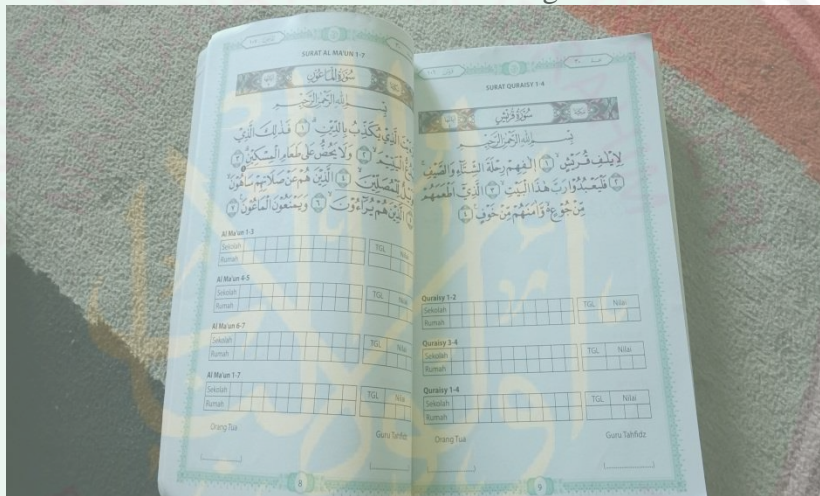 SURAT AL MA'UN 1-7
سُورَةُ الْمَاعُونِ
بِسْمِ اللهِ الرَّحْمٰنِ الرَّحِيْمِ
الَّذِيْ يُكَذِّبُ بِالدِّيْنِۗ ١ فَذٰلِكَ الَّذِيْ
الْيَتِيْمَۙ ٢ وَلَا يَحُضُّ عَلٰى طَعَامِ الْمِسْكِيْنِۗ ٣
لِّلْمُصَلِّيْنَۙ ٤ الَّذِيْنَ هُمْ عَنْ صَلَاتِهِمْ سَاهُوْنَۙ
الَّذِيْنَ هُمْ يُرَاۤءُوْنَۙ ٦ وَيَمْنَعُوْنَ الْمَاعُوْنَ ٧
Al Ma'un 1-3
Sekolah TGL Nilai
Rumah
Al Ma'un 4-5
Sekolah TGL Nilai
Rumah
Al Ma'un 6-7
Sekolah TGL Nilai
Rumah
Al Ma'un 1-7
Sekolah TGL Nilai
Rumah
Orang Tua Guru Tahfidz
8
SURAT QURAISY 1-4
سُورَةُ قُرَيْشٍ
بِسْمِ اللهِ الرَّحْمٰنِ الرَّحِيْمِ
لِاِيْلٰفِ قُرَيْشٍۙ ١ اٖلٰفِهِمْ رِحْلَةَ الشِّتَاۤءِ وَالصَّيْفِۚ
٢ فَلْيَعْبُدُوْا رَبَّ هٰذَا الْبَيْتِۙ ٣ الَّذِيْٓ اَطْعَمَهُمْ
مِّنْ جُوْعٍ ەۙ وَّاٰمَنَهُمْ مِّنْ خَوْفٍ ٤
Quraisy 1-2
Sekolah TGL Nilai
Rumah
Quraisy 3-4
Sekolah TGL Nilai
Rumah
Quraisy 1-4
Sekolah TGL Nilai
Rumah
Orang Tua Guru Tahfidz
9